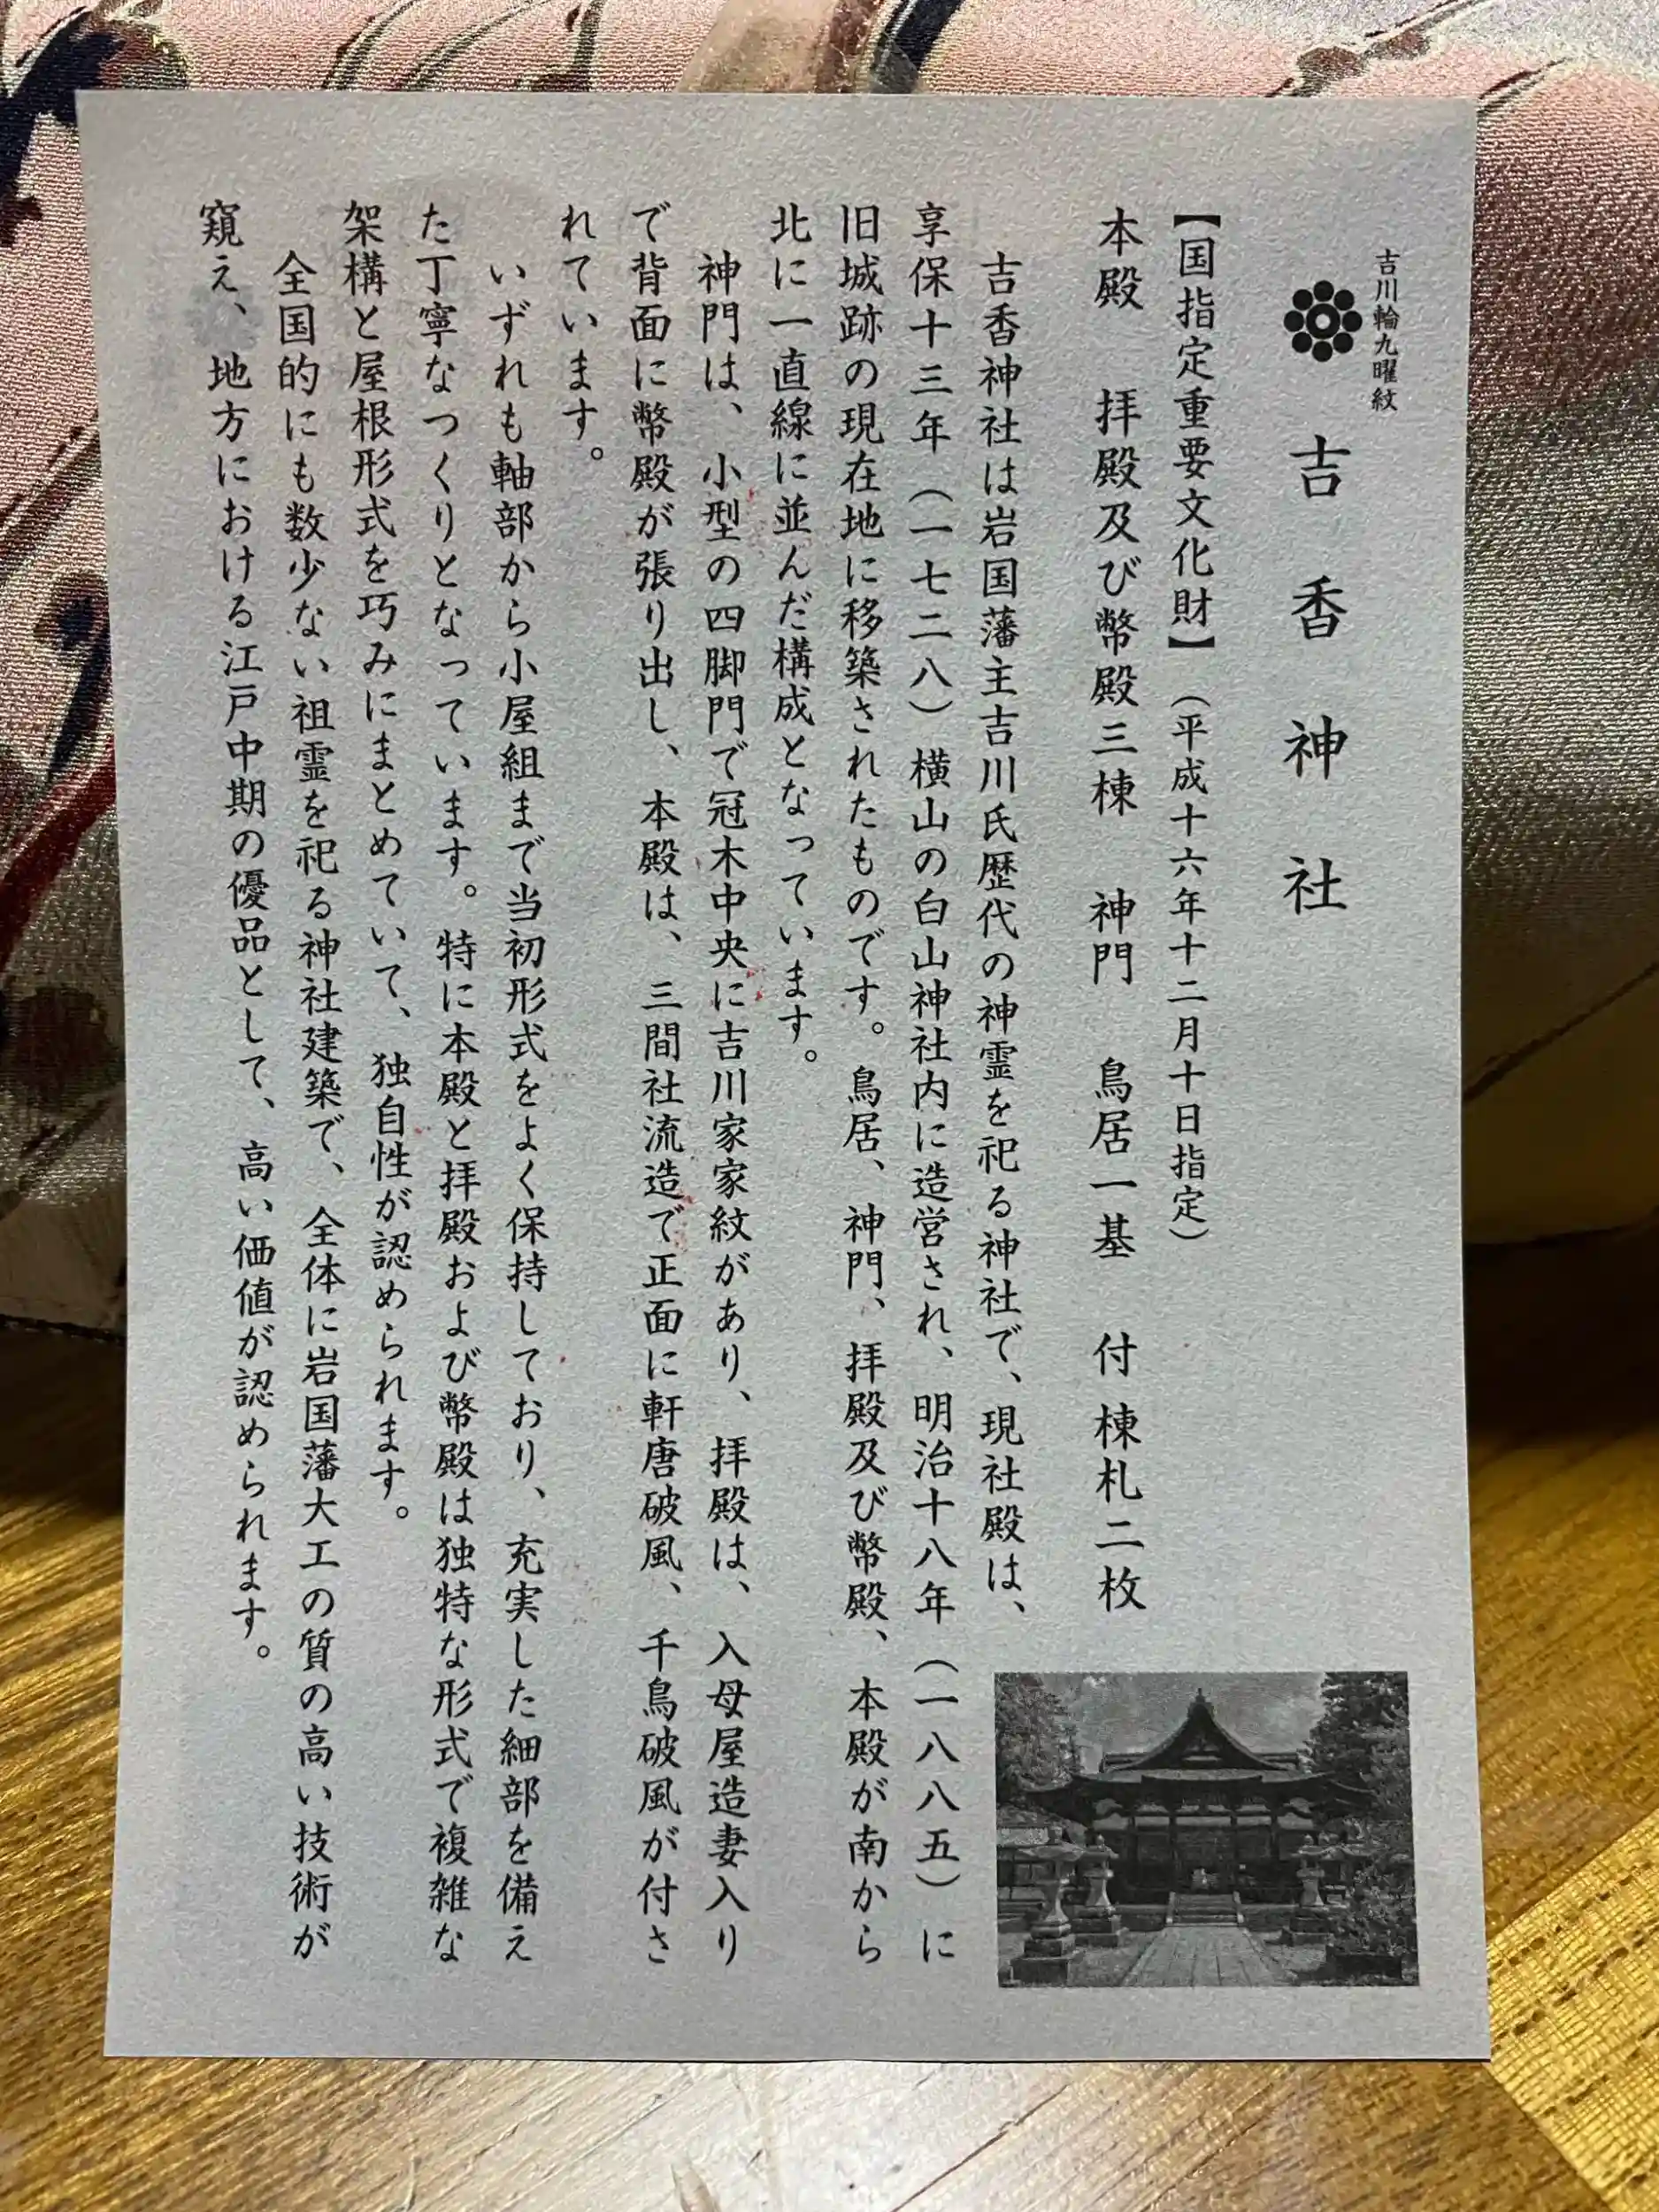 吉川輪九曜紋
吉香神社
【国指定重要文化財】（平成十六年十二月十日指定）
本殿　拝殿及び幣殿三棟　神門　鳥居一基　付棟札二枚
吉香神社は岩国藩主吉川氏歴代の神霊を祀る神社で、現社殿は、
享保十三年（一七二八）横山の白山神社内に造営され、明治十八年（一八八五）に
旧城跡の現在地に移築されたものです。鳥居、神門、拝殿及び幣殿、本殿が南から
北に一直線に並んだ構成となっています。
神門は、小型の四脚門で冠木中央に吉川家家紋があり、拝殿は、入母屋造妻入り
で背面に幣殿が張り出し、本殿は、三間社流造で正面に軒唐破風、千鳥破風が付さ
れています。
いずれも軸部から小屋組まで当初形式をよく保持しており、充実した細部を備え
た丁寧なつくりとなっています。特に本殿と拝殿および幣殿は独特な形式で複雑な
架構と屋根形式を巧みにまとめていて、独自性が認められます。
全国的にも数少ない祖霊を祀る神社建築で、全体に岩国藩大工の質の高い技術が
窺え、地方における江戸中期の優品として、高い価値が認められます。